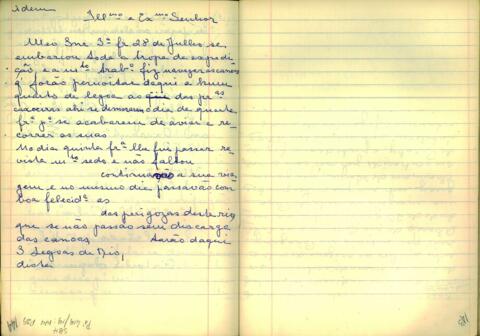 Idem
Illmo e Exmo Senhor
3ª fr 28 de Julho se
embarcou toda a tropa da expedi
ção, e a mto trabo fiz navegar as canoas
q forão pernoitar daqui a hum
quarto de legoa ao
ahi se demorou o dia de quinta
frª pª se acabarem de aviar e re
correr as suas
No dia quinta frª lhe fui passar re
vista mto sedo e não faltou
continuarão a sua via
gem e no mesmo dia passavão com
boa felecide as
das perigozas deste rio
que se não passão sem descarga
das canoas daqui
3 legoas de Rio,
dista